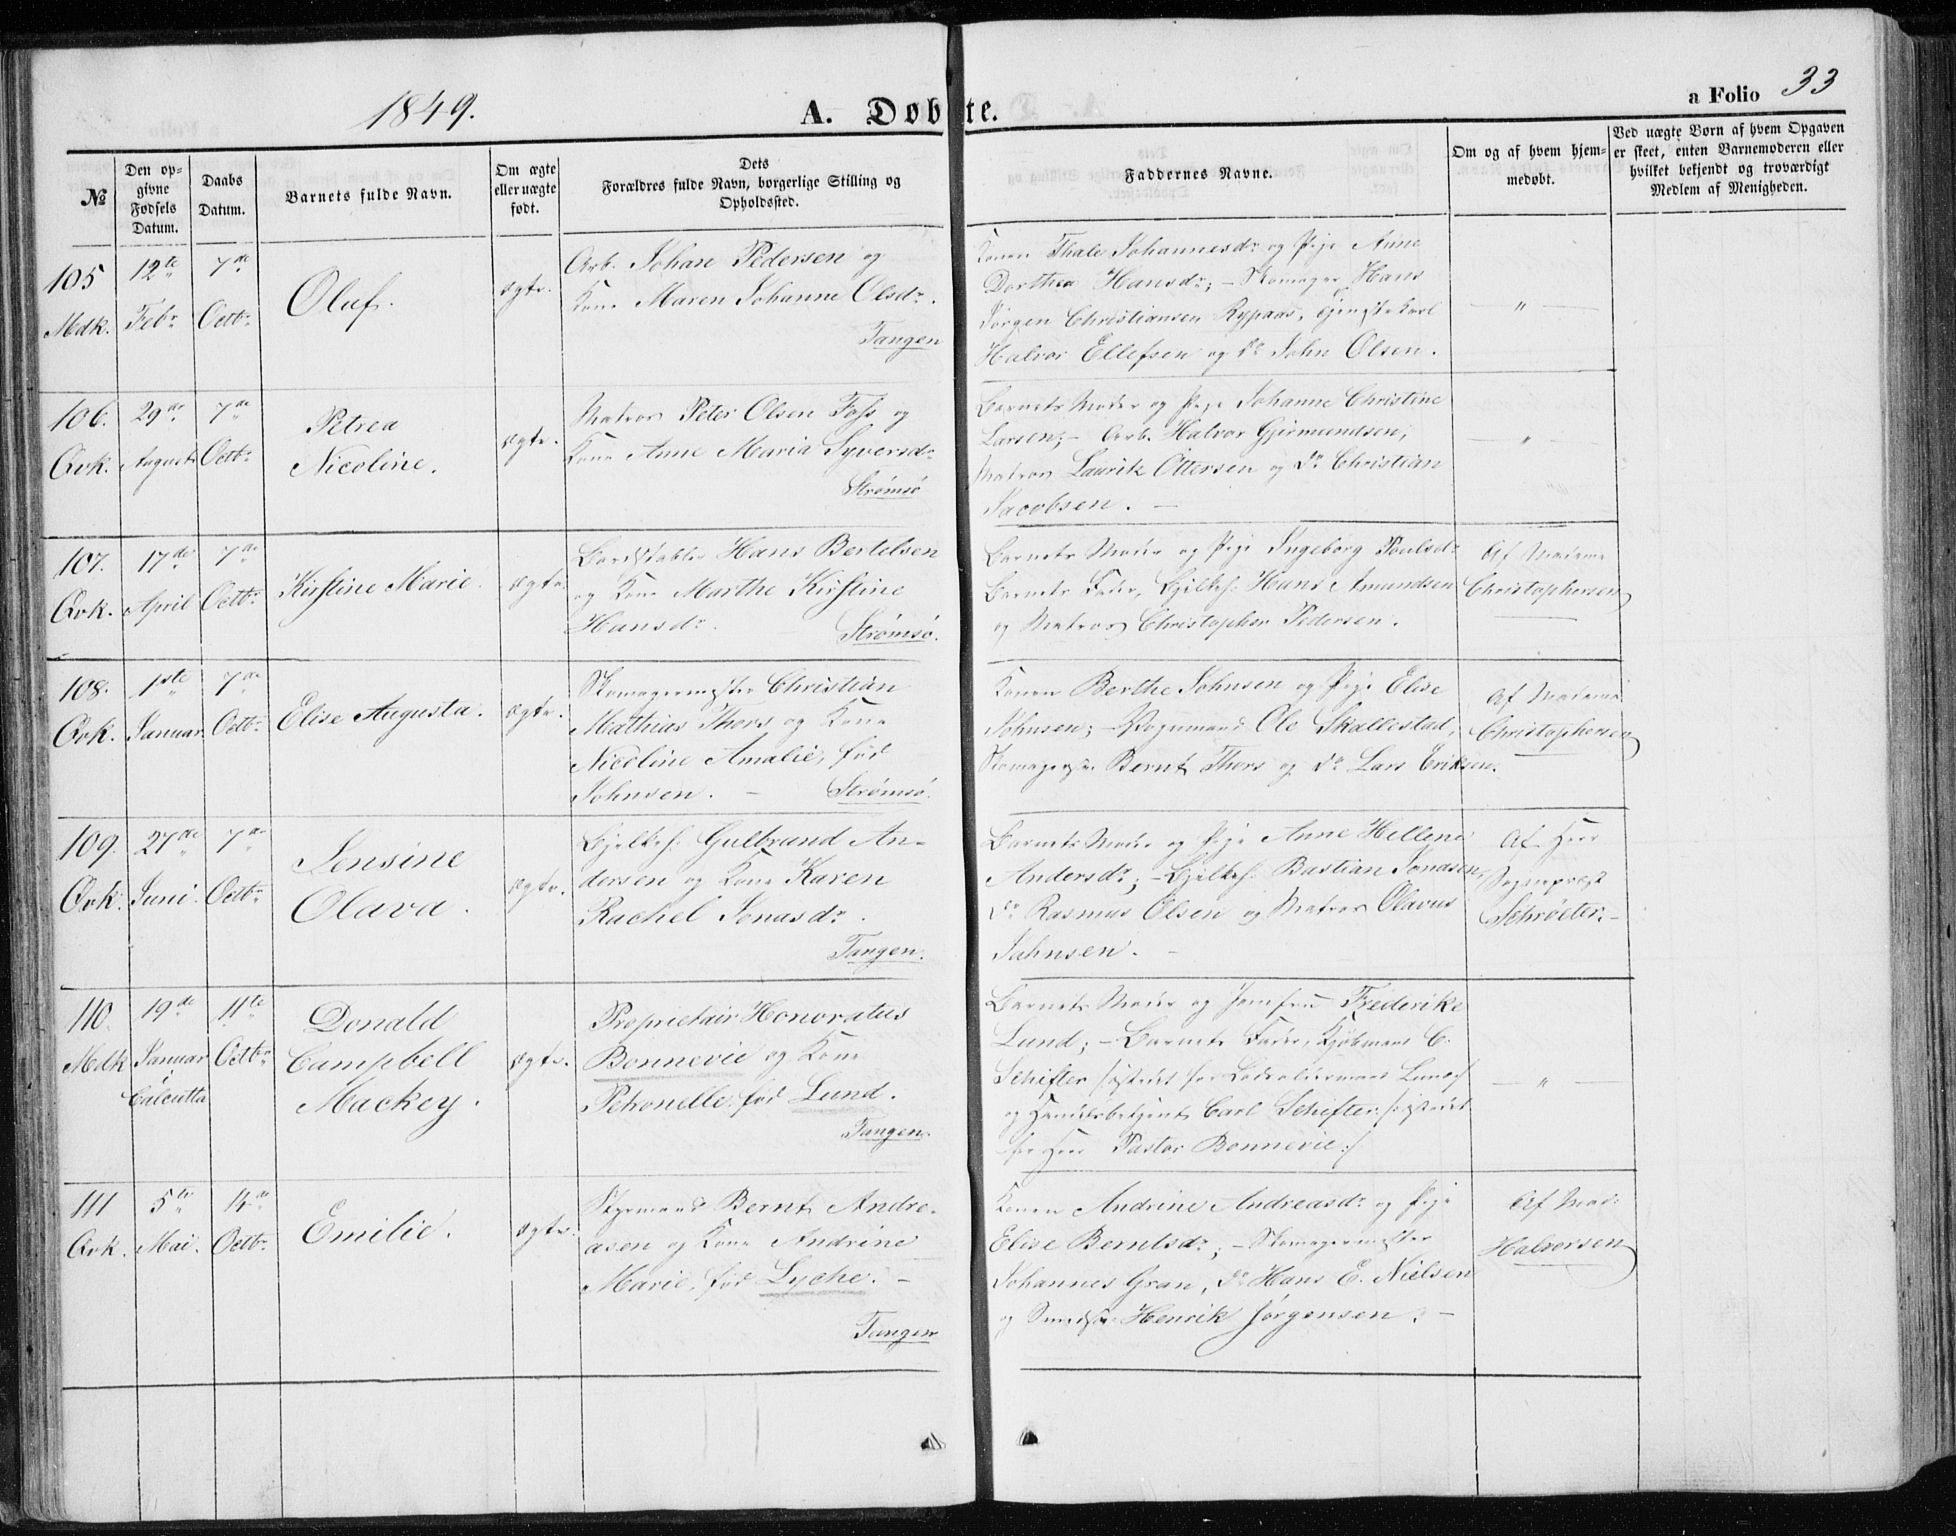 1849.
A. Døbte.
a Folio 33
№
Den opgivne Fødsels Datum.
Daabs Datum.
Barnets fulde Navn.
Om ægte eller uægte født.
Dets Forældres fulde Navn, borgerlige Stilling og Opholdssted.
Faddernes Navne.
Om og af hvem hjemmedøbt.
Ved uægte Børn af hvem Opgaven er skeet, enten Barnemoderen eller hvilket bekjendt og troværdigt Medlem af Menigheden.
105 Mdk.
12te Febr
7de Octbr
Olaf.
ægte.
Arb. Johan Pedersen og
Kone Maren Johanne Olsdr.
Tangen
Konen Thale Johannesdr og Pige Anne
Dorthea Hansdr; – Skomager Hans
Jørgen Christiansen Rypaas, Tjenestekarl
Halvor Ellefsen og Do John Olsen.
— " —
106. Qvk.
29de August
7de Octbr
Petrea
Nicoline.
ægte.
Matros Peter Olsen Foss og
Kone Anne Maria Syversdr
Strømsø
Barnets Moder og Pige Johanne Christine
Larsen; – Arb. Halvor Girmundsen,
Matros Laurik Ottersen og Do Christian
Jacobsen. —
— " —
107. Qvk.
17de April
7de Octbr
Kirstine Marie.
ægte.
Bordstabler Hans Bertelsen
og Kone Marthe Kirstine
Hansdr. Strømsø.
Barnets Moder og Pige Ingeborg Poulsdr
Barnets Fader, Bjelkeh. Hans Amundsen
og Matros Christopher Pedersen.
Af Madame
Christophersen
108. Qvk.
1ste Januar
7de Octbr
Elise Augusta.
ægte.
Skomagermester Christian
Mathias Thors og Kone
Nicoline Amalie, født
Johnsen. – Strømsø.
Konen Berthe Johnsen og Pige Elise
Johnsen; – Vognmand Ole Skallestad,
Skomagersv. Bernt Thors og Do Lars Eriksen.
Af Madame
Christophersen
109. Qvk.
27de Juni.
7de Octbr
Jensine
Olava.
ægte.
Bjelkeh. Gulbrand An-
dersen og Kone Karen
Rachel Jonasdr.
Tangen.
Barnets Moder og Pige Anne Hellene
Andersdr; – Bjelkeh. Bastian Jonasen,
Do Rasmus Olsen og Matros Olavus
Jahnsen. —
Af Herr
Sognepræst
Schrøeter. –
110. Mdk
19de Januar i Calcutta
11te Octbr
Donald
Campbell
Mackey.
ægte.
Proprietair Honoratus
Bonnevie og Kone
Petronelle, født Lund.
Tangen.
Barnets Moder og Jomfru Frederikke
Lund; – Barnets Fader, Kjøbmand C.
Schifter /: istedet for Lund :/
og Handelsbetjent Carl Schifter /: istedet
for Herr Pastor Bonnevie :/
— " —
111 Qvk.
5te Mai.
14de Octbr
Emilie.
ægte.
Styrmand Bernt Andre-
asen og Kone Andrine
Marie, født Lyche. –
Tangen
Konen Andrine Andreasdr og Pige
Elise Berntsdr; – Skomagermester
Johannes Gran, Do Hans E. Nielsen
og Smedsv. Henrik Jørgensen. –
Af Mad:
Halvorsen